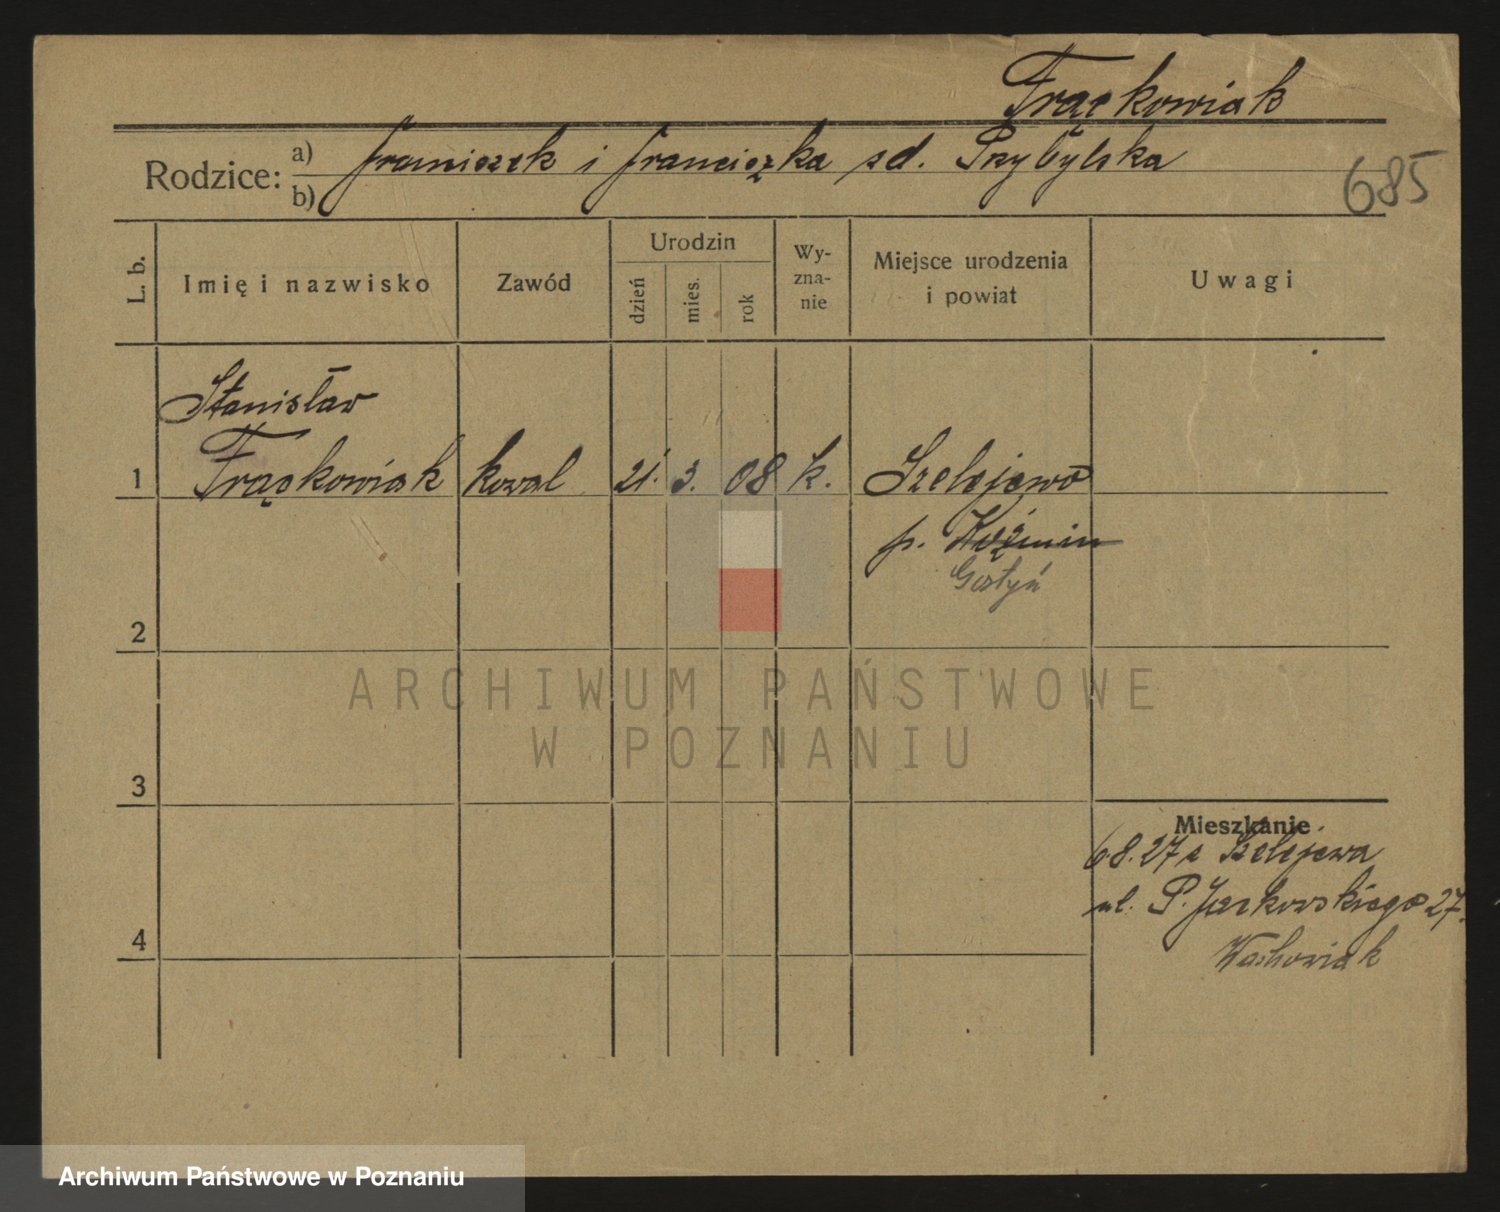 Frąckowiak
Rodzice: a) Franciszek i Franciszka zd. Przybylska
b)
685
L. b.
Imię i nazwisko
Zawód
Urodzin
dzień
mies.
rok
Wy-
zna-
nie
Miejsce urodzenia
i powiat
Uwagi
Stanisław
1 Frąckowiak kowal 21. 3. 08 k. Szelejewo
p. Koźmin
Gostyń
2
ARCHIWUM PAŃSTWOWE
W POZNANIU
3
Mieszkanie
6.8.27 z Szelejewa
ul. P. Jackowskiego 27.
4
Wachowiak
Archiwum Państwowe w Poznaniu